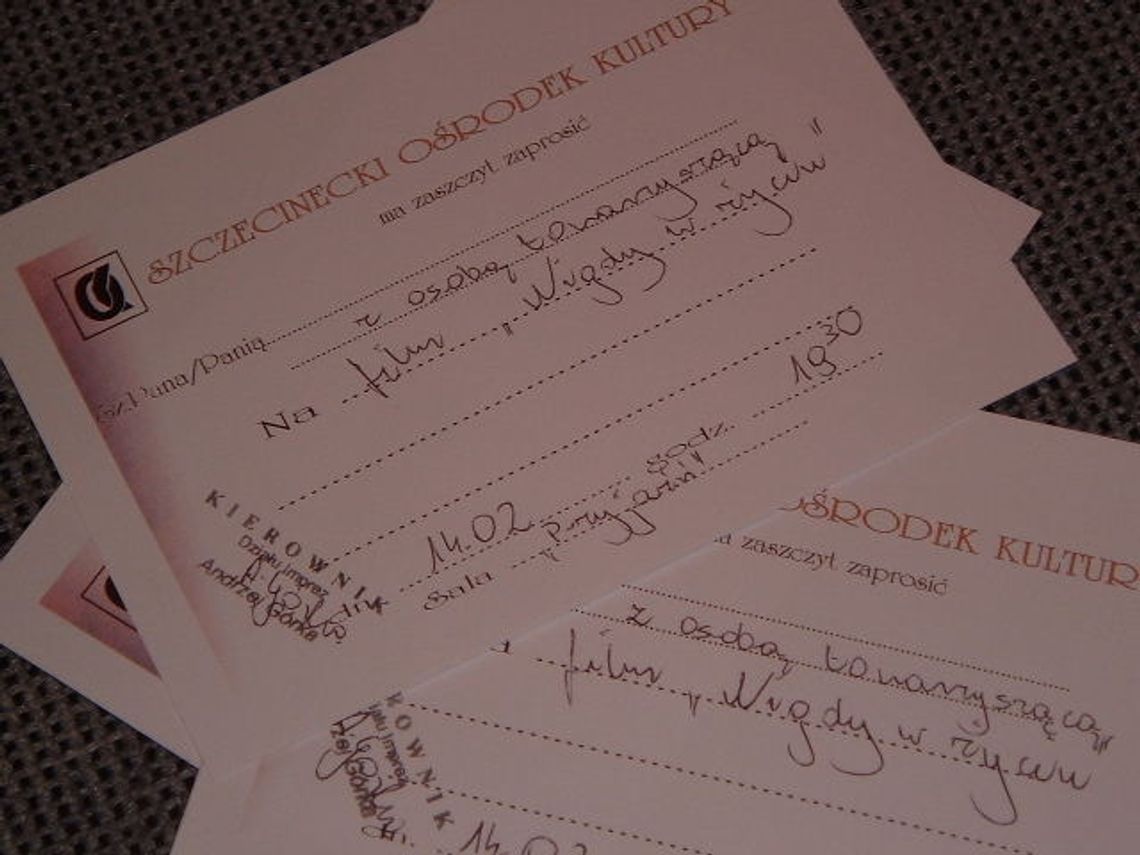 SZCZECINECKI OŚRODEK KULTURY
ma zaszczyt zaprosić
Sz.Pana/Panią
z osobą towarzyszącą
Na film „Nigdy w życiu"
14.02 godz. 19 30
Sala „Przyjaźń"
KIEROWNIK
Działu Imprez
Andrzej Górka
OŚRODEK KULTUR
zaszczyt zaprosić
z osobą towarzyszącą
film „Nigdy w życiu"
OWNIK
Imprez
Górka
14.02